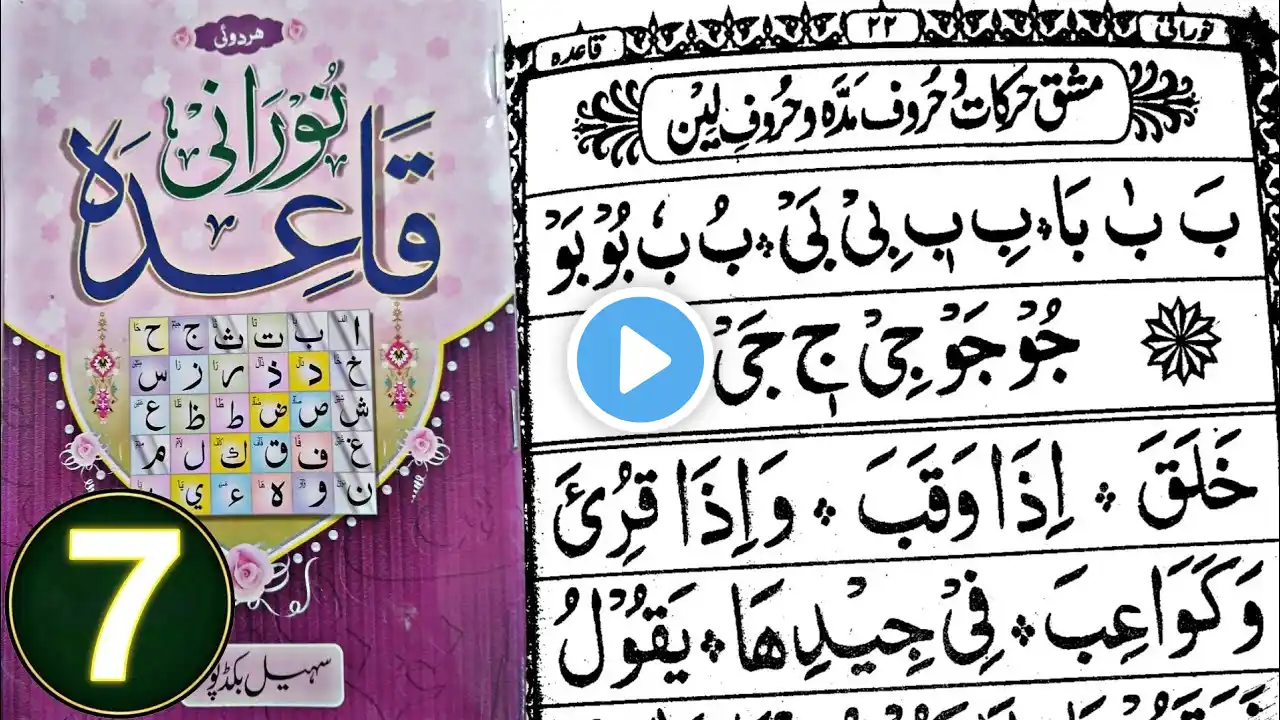 هردوئی
نُوْرَانِیْ
قَاعِدَہ
ا ب ت ث ج ح
خ د ذ ر ز س
ش ص ض ط ظ ع
غ ف ق ك ل م
ن و ه ء ي
سہیل بکڈپو
7
نورانی ۲۲ قاعدہ
مشق حرکات و حروف مدّہ و حروفِ لین
بَ بٰ بَا ۞ بِ بٖ بِیْ بَیْ ۞ بُ بٗ بُوْ بَوْ
جُوْ جَوْ جِیْ جٖ جَیْ
خَلَقَ ۞ اِذَا وَقَبَ ۞ وَاِذَا قُرِئَ
وَکَوَاعِبَ ۞ فِیْ جِیْدِهَا ۞ یَقُوْلُ